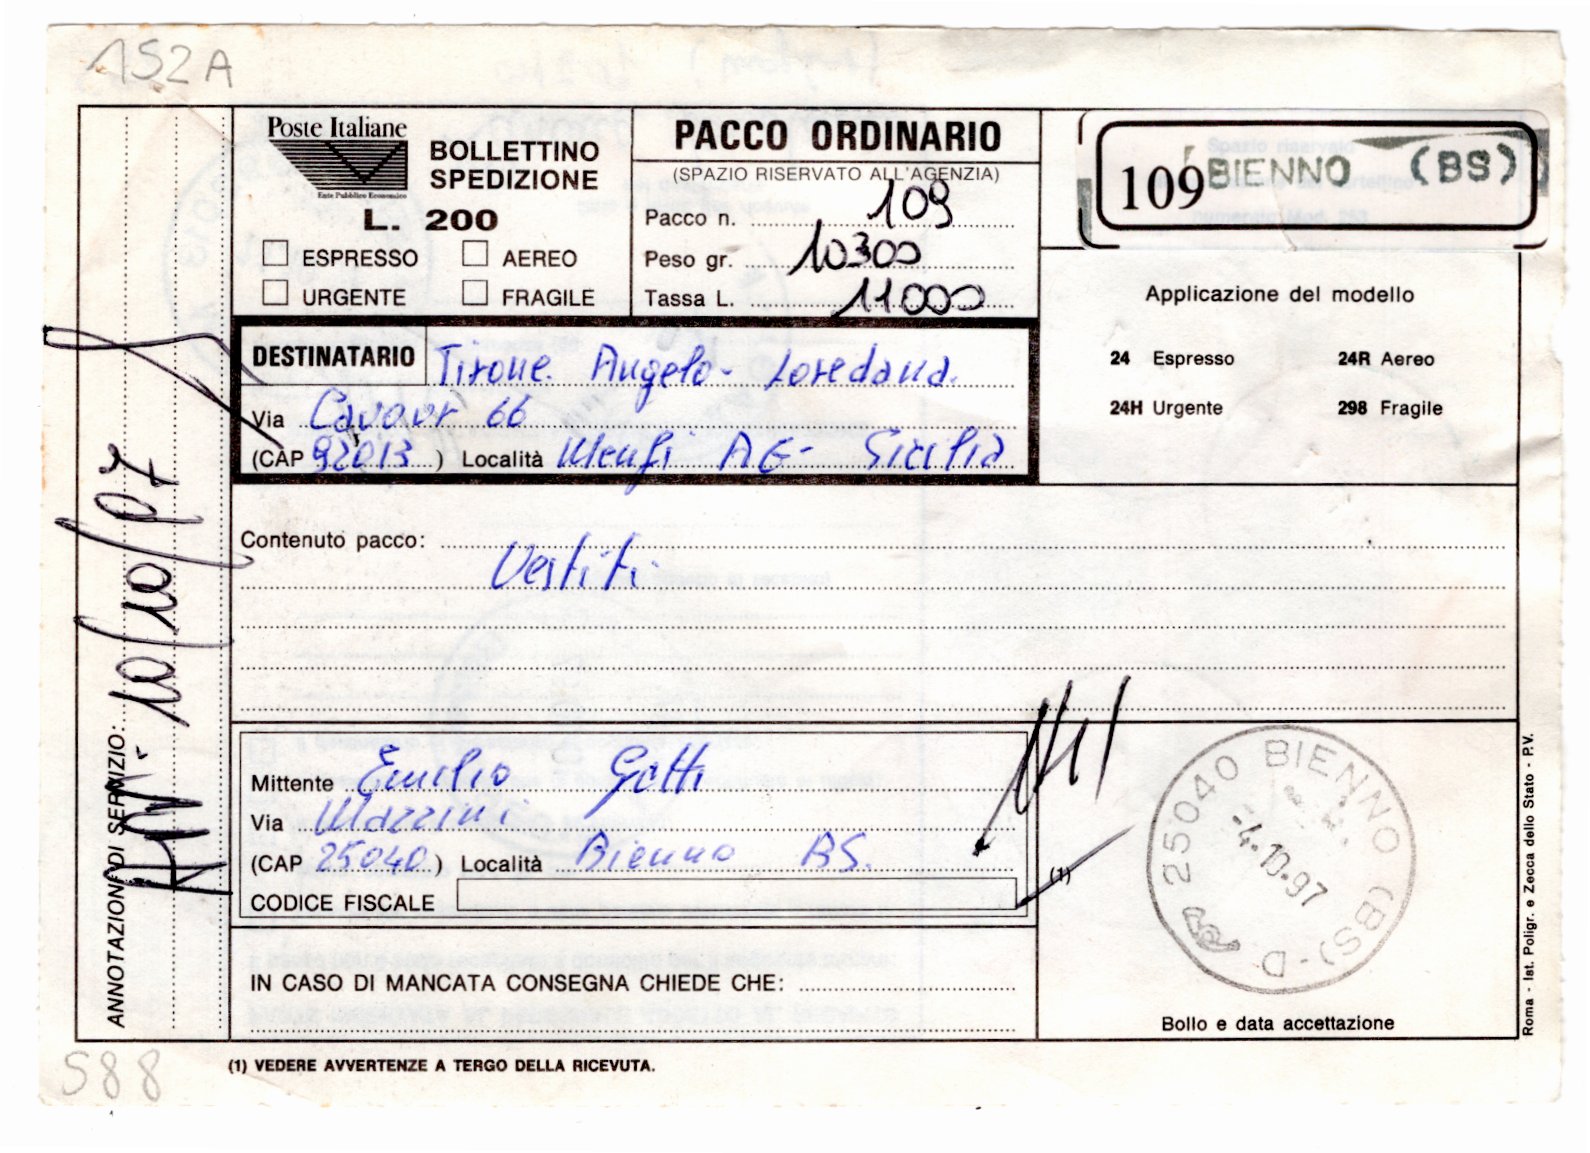 152A
Poste Italiane
Ente Pubblico Economico
BOLLETTINO
SPEDIZIONE
L. 200
ESPRESSO AEREO
URGENTE FRAGILE
PACCO ORDINARIO
(SPAZIO RISERVATO ALL'AGENZIA)
Pacco n. 109
Peso gr. 10300
Tassa L. 11000
109 BIENNO (BS)
Applicazione del modello
24 Espresso 24R Aereo
24H Urgente 298 Fragile
DESTINATARIO Tirone Angelo - Loredana
Via Cavour 66
(CAP 92013) Località Menfi AG - Sicilia
Contenuto pacco:
Vestiti
ANNOTAZIONI DI SERVIZIO:
10/10/97
Mittente Emilio Gotti
Via Mazzini
(CAP 25040) Località Bienno BS.
CODICE FISCALE
(1)
IN CASO DI MANCATA CONSEGNA CHIEDE CHE:
25040 BIENNO (BS) - D
-4.10.97
Bollo e data accettazione
Roma - Ist. Poligr. e Zecca dello Stato - P.V.
588
(1) VEDERE AVVERTENZE A TERGO DELLA RICEVUTA.